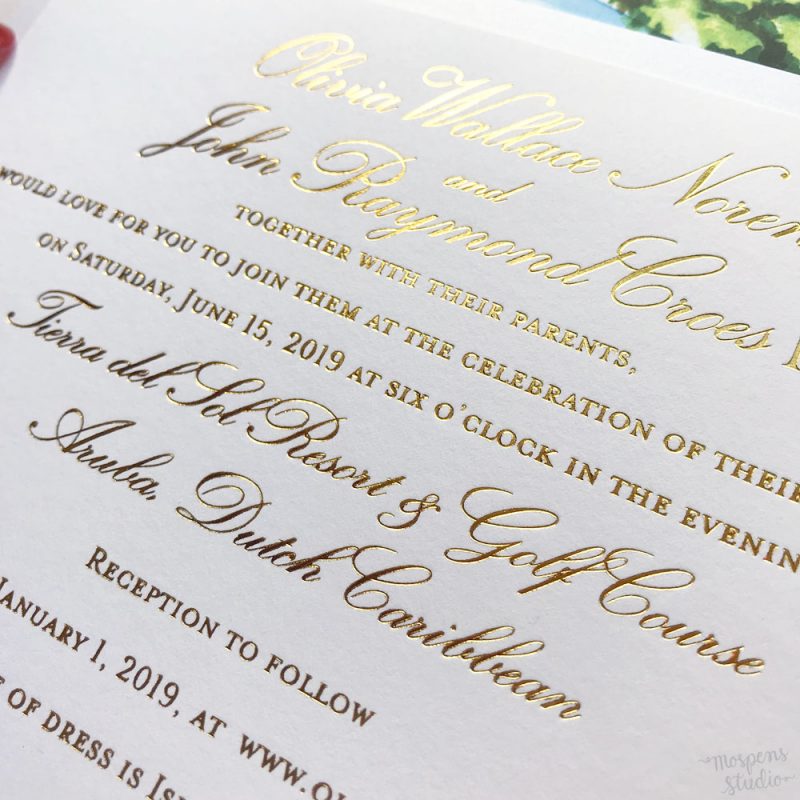 Olivia Wallace
and
John Raymond Croes
TOGETHER WITH THEIR PARENTS,
WOULD LOVE FOR YOU TO JOIN THEM AT THE CELEBRATION OF THEIR
ON SATURDAY, JUNE 15, 2019 AT SIX O'CLOCK IN THE EVENING
Tierra del Sol Resort & Golf Course
Aruba, Dutch Caribbean
RECEPTION TO FOLLOW
JANUARY 1, 2019, AT
OF DRESS IS
mospens
studio